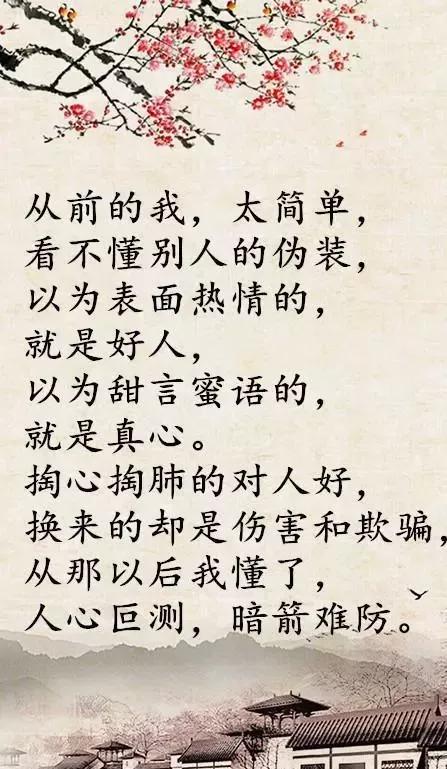 从前的我，太简单，
看不懂别人的伪装，
以为表面热情的，
就是好人，
以为甜言蜜语的，
就是真心。
掏心掏肺的对人好，
换来的却是伤害和欺骗，
从那以后我懂了，
人心叵测，暗箭难防。